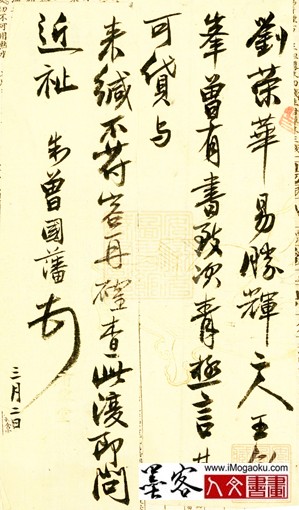 劉榮華易勝輝二人王
峯曾有書致次青極言其
可貸与
来緘不符容再確查此復即問
近祉 曾國藩頓
三月二日
墨客
www.iMogaoku.com
人文書畫